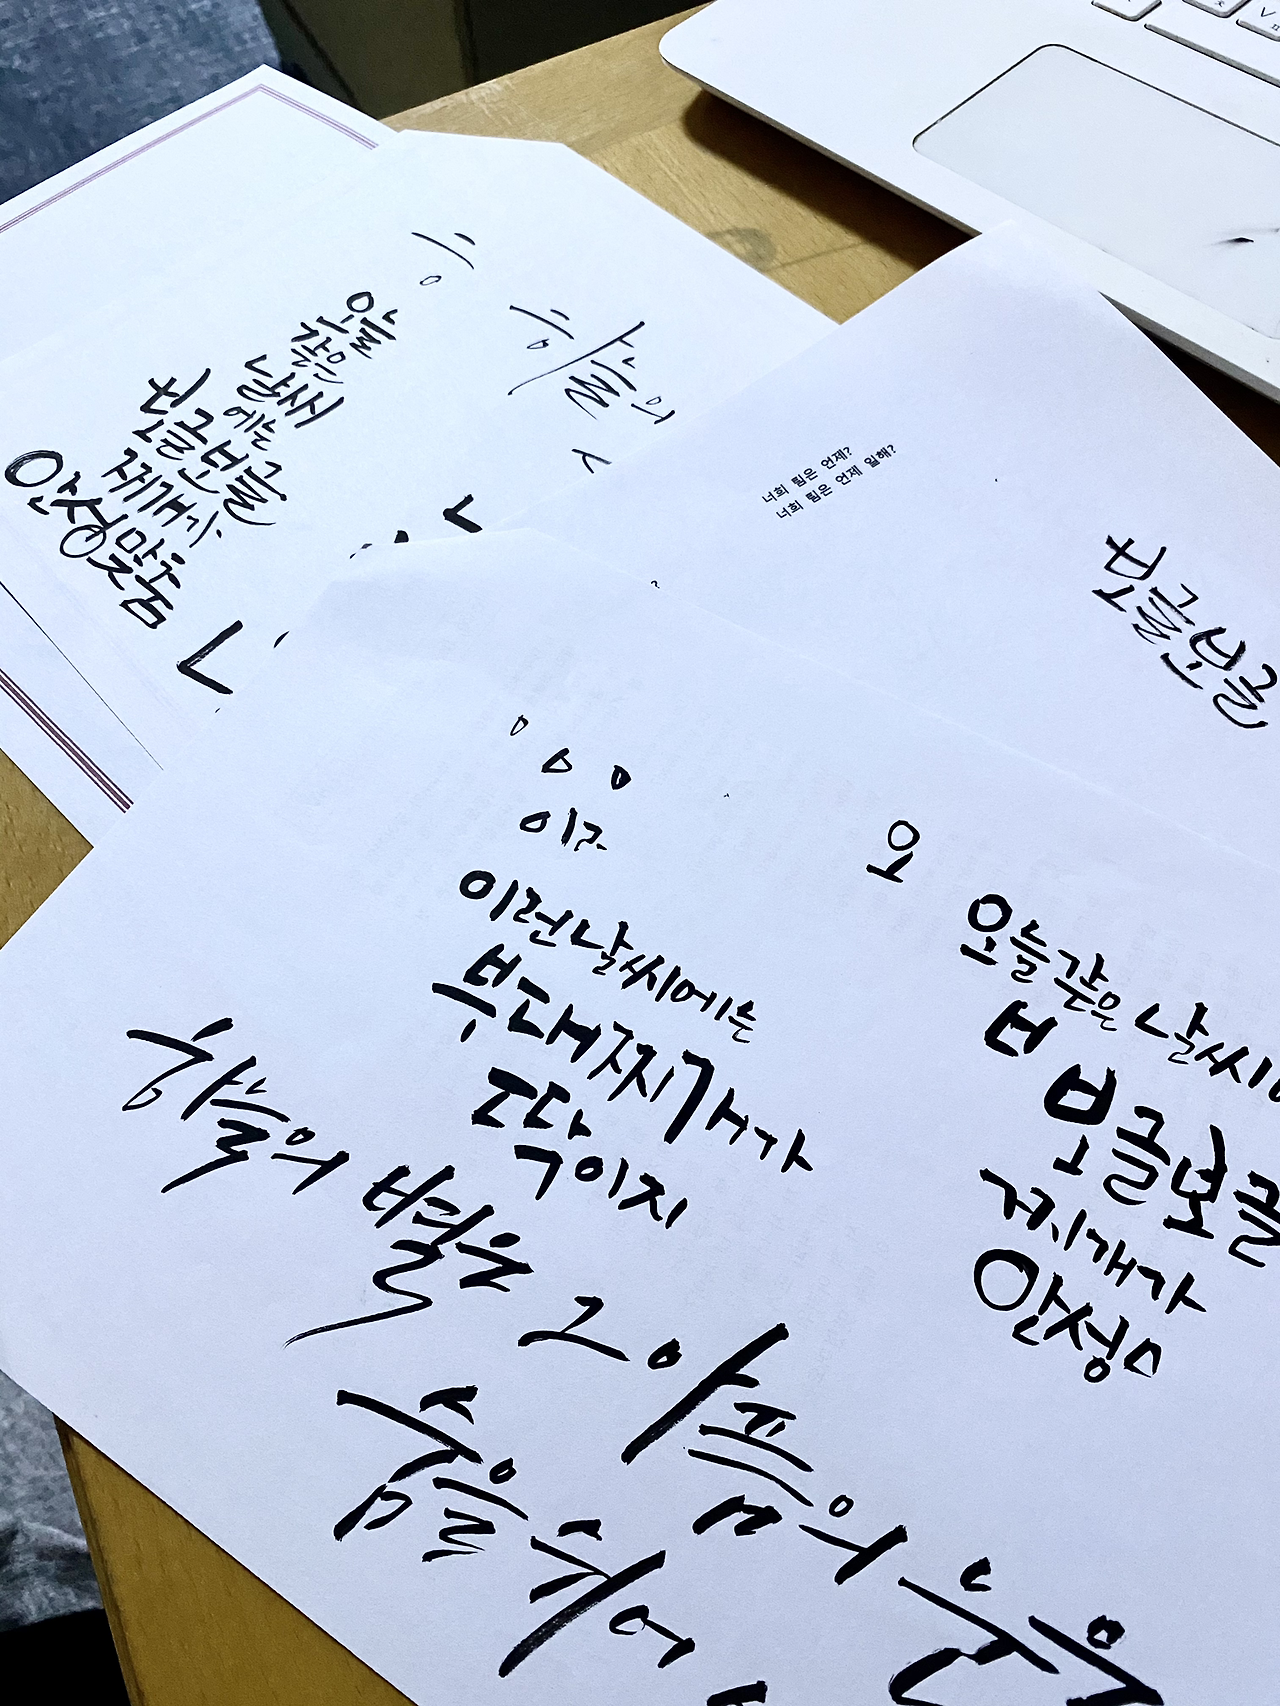 흐
오늘
같은
날씨
에는
보글보글
찌개가
안성맞춤
하늘의
ㅅ
너희 팀은 언제?
너희 팀은 언제 일해?
보글보글
이ㄹ
이런 날씨에는
부대찌개가
딱이지
오
오늘 같은 날씨
ㅂ
보글보글
찌개가
안성ㅁ
하늘의 별은 그 아픔의 눈
숨을 쉬어